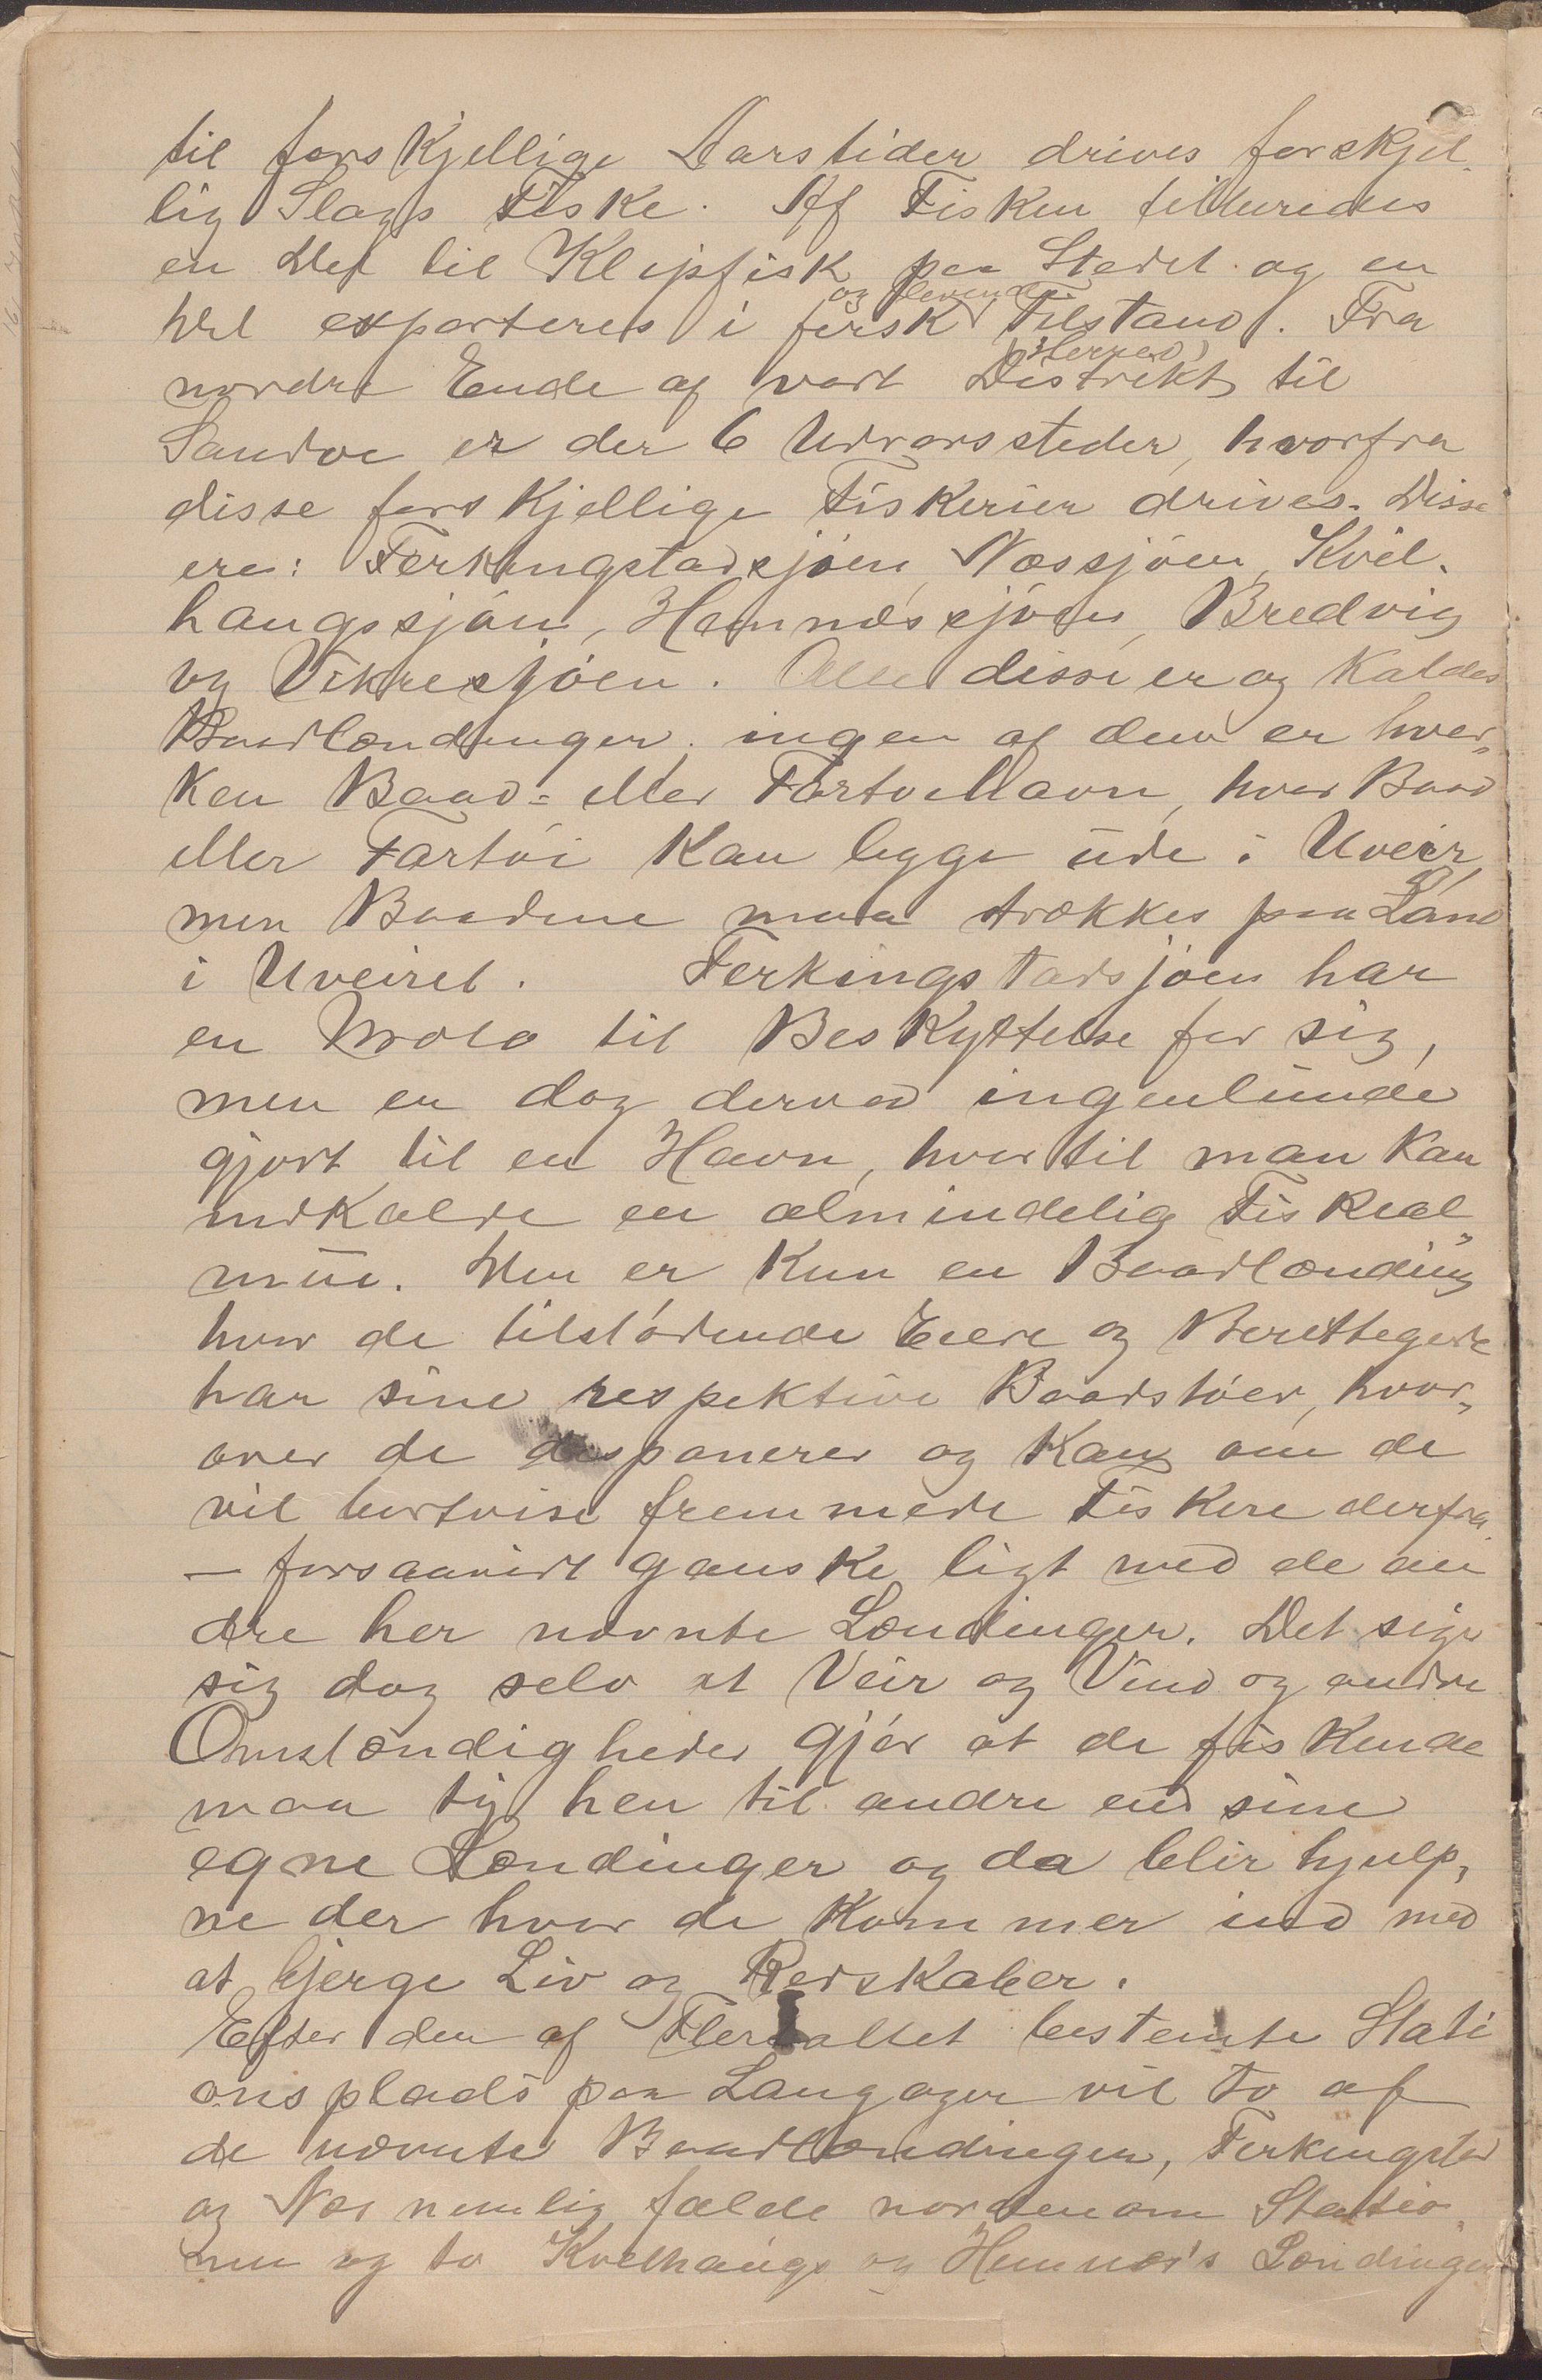 til forskjellige Aarstider drives forskjel-
lig Slags Fiske. Af Fisken tilberedes
en Del til Klipfisk paa Stedet og en
og levende
Del exporteres i fersk Tilstand. Fra
(Herred)
nordre Ende af vort Distrikt til
Sandve er der 6 Udrorssteder, hvorfra
disse forskjellige Fiskerier drives. Disse
ere: Ferkingstadsjøen, Næssjøen, Kvil-
haugssjøen, Hemnessjøen, Bredvig
og Vikresjøen. Alle disse er og kaldes
Baadlændinger, ingen af dem er hver-
ken Baad- eller Fartøihavn, hvor Baad
eller Fartøi kan ligge ude i Uveir,
men Baadene maa trækkes paa Land
i Uveiret. Ferkingstadsjøen har
en Molo til Beskyttelse for sig,
men er dog derved ingenlunde
gjort til en Havn, hvortil man kan
indkalde en almindelig Fiskeal-
mue. Den er kun en Baadlænding
hvor de tilstødende Eiere og Berettegede
har sine respektive Baadstøer, hvor-
over de disponerer og kan om de
vil bortvise fremmede Fiskere derfra
– forsaavidt ganske ligt med de an
dre her nævnte Lændinger. Det siger
sig dog selv at Veir og Vind og andre
Omstændigheder gjør at de fiskende
maa ty hen til andre end sine
egne Lændinger og da blir hjulp-
ne der hvor de kommer ind med
at bjerge Liv og Redskaber.
Efter den af Flertallet bestemte Stati
onsplads paa Langager vil to af
de nævnte Baadlændinger, Ferkingstad
og Næs nemlig falde nordenom Statio-
nen og to Kvelhaugs og Hemnes's Lændinger